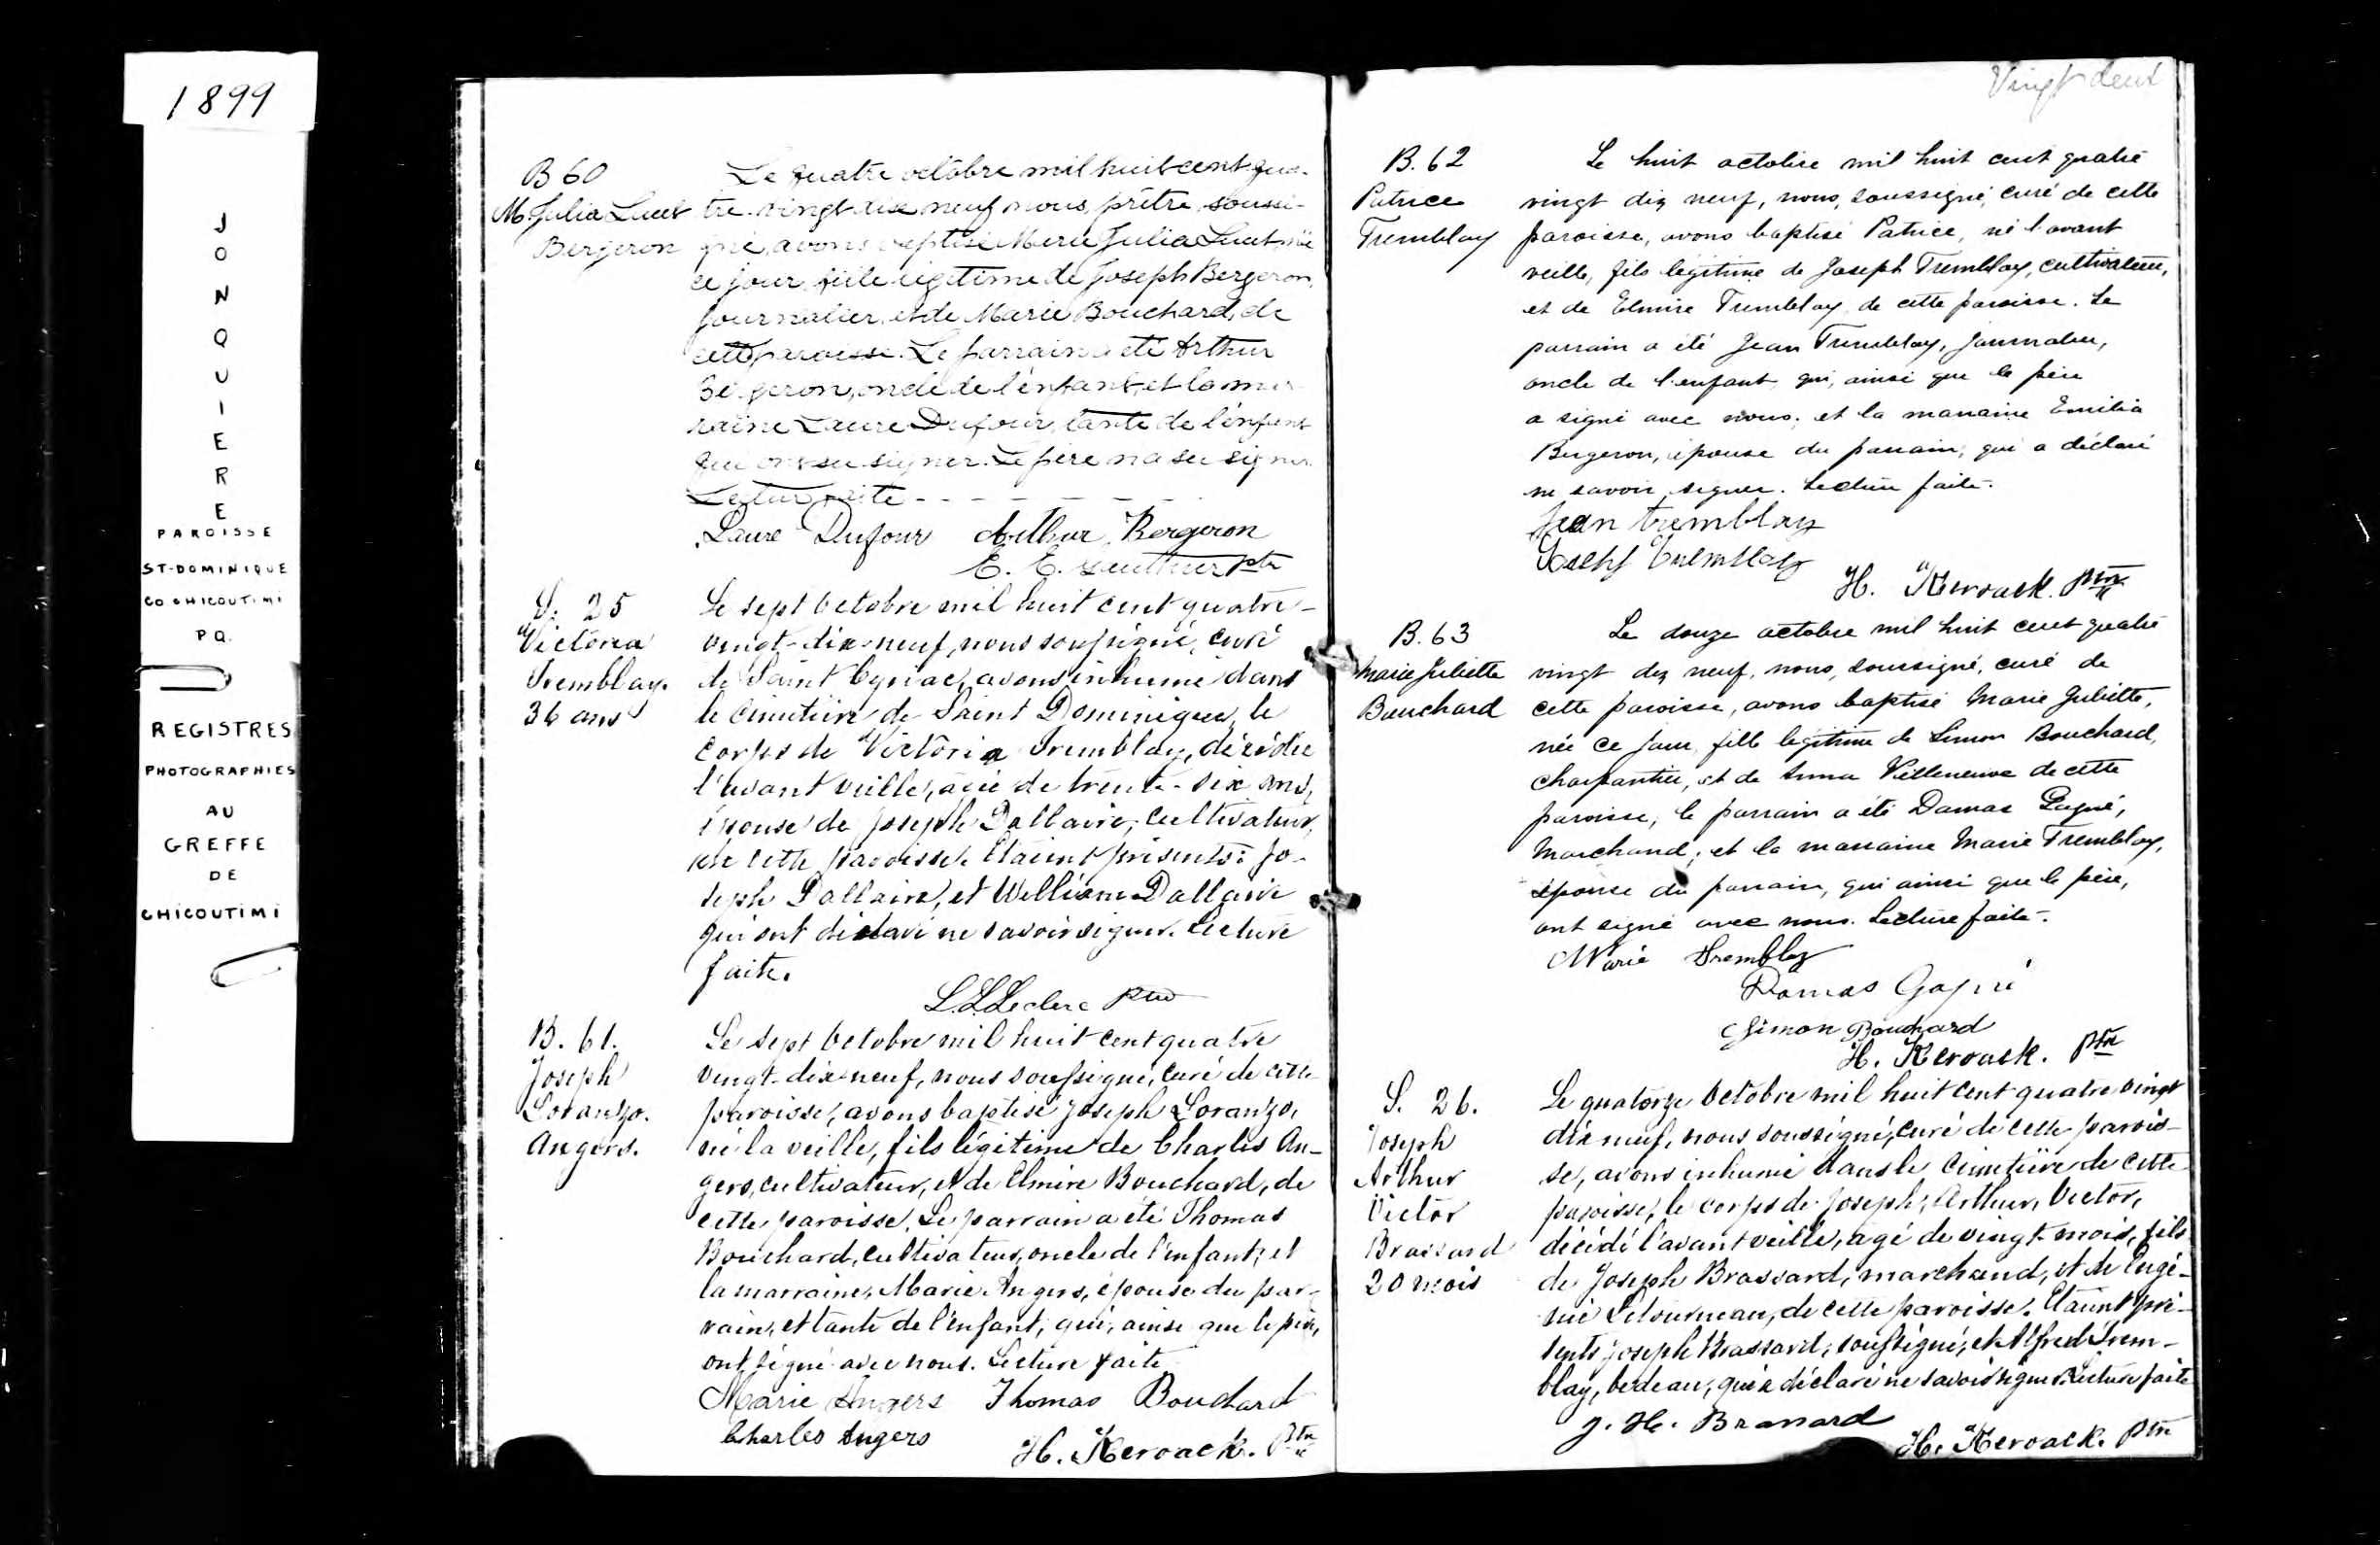 1899
J
O
N
Q
U
I
E
R
E
PAROISSE
ST-DOMINIQUE
CO CHICOUTIMI
PQ.
REGISTRES
PHOTOGRAPHIES
AU
GREFFE
DE
CHICOUTIMI
B 60
M. Julia Lucet
Bergeron
Le quatre octobre mil huit cent qua-
tre-vingt dix neuf nous, prêtre, soussi-
gné, avons baptisé Marie Julia Lucet née
ce jour, fille légitime de Joseph Bergeron,
journalier, et de Marie Bouchard, de
cette paroisse. Le parrain a été Arthur
Bergeron, oncle de l'enfant, et la mar
raine Laure Dufour, tante de l'enfant
qui ont su signer. Le père n'a su signer.
Lecture faite - - - - - -
Laure Dufour Arthur Bergeron
E. E. ptre
S. 25
Victoria
Tremblay.
36 ans
Le sept Octobre mil huit cent quatre-
vingt-dix-neuf, nous soussigné, curé
de Saint Cyriac, avons inhumé dans
le cimetière de Saint Dominique, le
corps de Victoria Tremblay, décédée
l'avant veille, agée de trente-six ans,
épouse de Joseph Dallaire, cultivateur,
de cette paroisse. Étaient présents: Jo-
seph Dallaire, et William Dallaire
qui ont déclaré ne savoir signer. Lecture
faite.
L.L.Leclerc Ptre
B. 61.
Joseph
Loranzo.
Angers.
Le sept Octobre mil huit cent quatre
vingt-dix-neuf, nous soussigné, curé de cette
paroisse, avons baptisé Joseph Loranzo,
né la veille, fils légitime de Charles An-
gers, cultivateur, et de Elmire Bouchard, de
cette paroisse. Le parrain a été Thomas
Bouchard, cultivateur, oncle de l'enfant, et
la marraine, Marie Angers, épouse du par-
rain, et tante de l'enfant, qui, ainsi que le père,
ont signé avec nous. Lecture faite
Marie Angers Thomas Bouchard
Charles Angers H. Keroack. Ptre
Vingt deux
B. 62
Patrice
Tremblay
Le huit octobre mil huit cent quatre
vingt dix neuf, nous, soussigné, curé de cette
paroisse, avons baptisé Patrice, né l'avant
veille, fils légitime de Joseph Tremblay, cultivateur,
et de Elmire Tremblay de cette paroisse. Le
parrain a été Jean Tremblay, journalier,
oncle de l'enfant qui, ainsi que le père
a signé avec nous; et la marraine Emilia
Bergeron, épouse du parrain, qui a déclaré
ne savoir signer. Lecture faite.
Jean tremblay
Joseph Tremblay
H. Keroack. ptre
B. 63
Marie Juliette
Bouchard
Le douze octobre mil huit cent quatre
vingt dix neuf, nous, soussigné, curé de
cette paroisse, avons baptisé Marie Juliette,
née ce jour, fille légitime de Simon Bouchard,
charpentier, et de Anna Villeneuve de cette
paroisse, le parrain a été Damas Gagné,
marchand; et la marraine Marie Tremblay,
épouse du parrain, qui ainsi que le père,
ont signé avec nous. Lecture faite.
Marie Tremblay
Damas Gagné
Simon Bouchard
H. Keroack. Ptre
S. 26.
Joseph
Arthur
Victor
Brassard
20 mois
Le quatorze Octobre mil huit cent quatre vingt
dix neuf, nous soussigné, curé de cette parois-
se, avons inhumé dans le cimetière de cette
paroisse, le corps de Joseph, Arthur, Victor,
décédé l'avant veille, agé de vingt mois, fils
de Joseph Brassard, marchand, et de Eugé-
nie Létourneau, de cette paroisse. Étaient pré-
sents Joseph Brassard, soussigné, et Alfred Trem-
blay, bedeau, qui a déclaré ne savoir signer. Lecture faite
J. H. Brassard
H. Keroack. Ptre